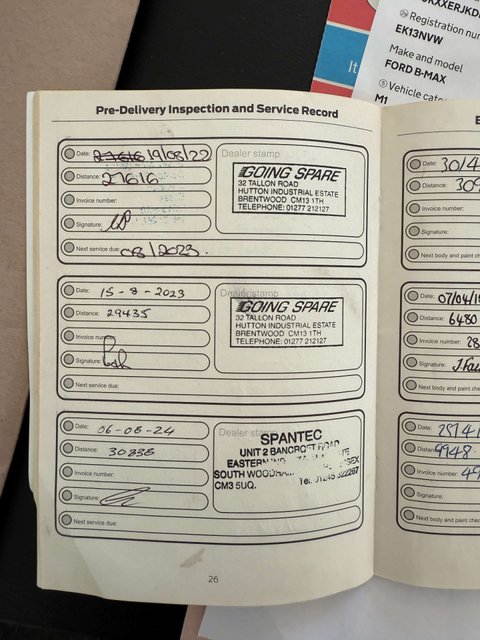 RKXXERJKD
Registration nu
EK13NVW
Make and model
FORD B-MAX
Vehicle cate
M1
It
Pre-Delivery Inspection and Service Record
Date: 27616 19/08/22
Distance: 27616
Invoice number:
Signature:
Next service due: 08/2023.
Dealer stamp
GOING SPARE
32 TALLON ROAD
HUTTON INDUSTRIAL ESTATE
BRENTWOOD CM13 1TH
TELEPHONE: 01277 212127
Date: 15-8-2023
Distance: 29435
Invoice number:
Signature:
Next service due:
Dealer stamp
GOING SPARE
32 TALLON ROAD
HUTTON INDUSTRIAL ESTATE
BRENTWOOD CM13 1TH
TELEPHONE: 01277 212127
Date: 06-08-24
Distance: 30836
Invoice number:
Signature:
Next service due:
Dealer stamp
SPANTEC
UNIT 2 BANCROFT ROAD
EASTERN
SOUTH
CM3 5UQ.
Tel: 01245 322267
26
Date: 30/4
Distance: 309
Invoice number:
Signature:
Next body and paint
Date: 07/04/1
Distance: 6480
Invoice number: 28
Signature:
Next body and paint che
Date:
Distance: 9948
Invoice number: 49
Signature:
Next body and paint che